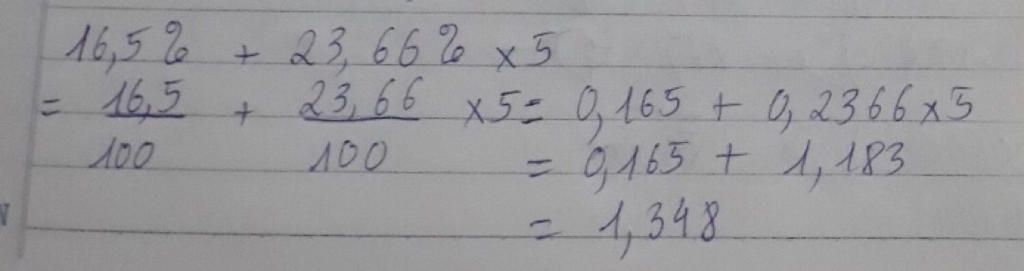 16,5% + 23,66% x 5
= 16,5/100 + 23,66/100 x5 = 0,165 + 0,2366 x 5
= 0,165 + 1,183
= 1,348